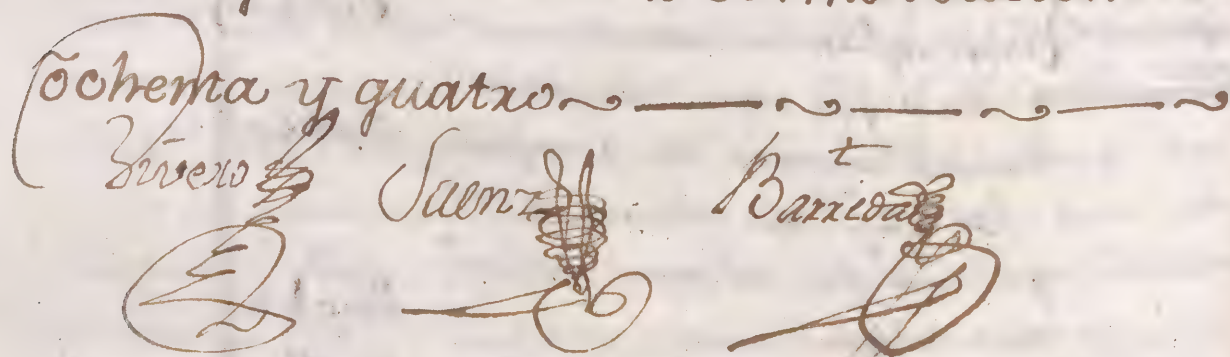 ochenta y quatro
Vivero Saenz Barreda